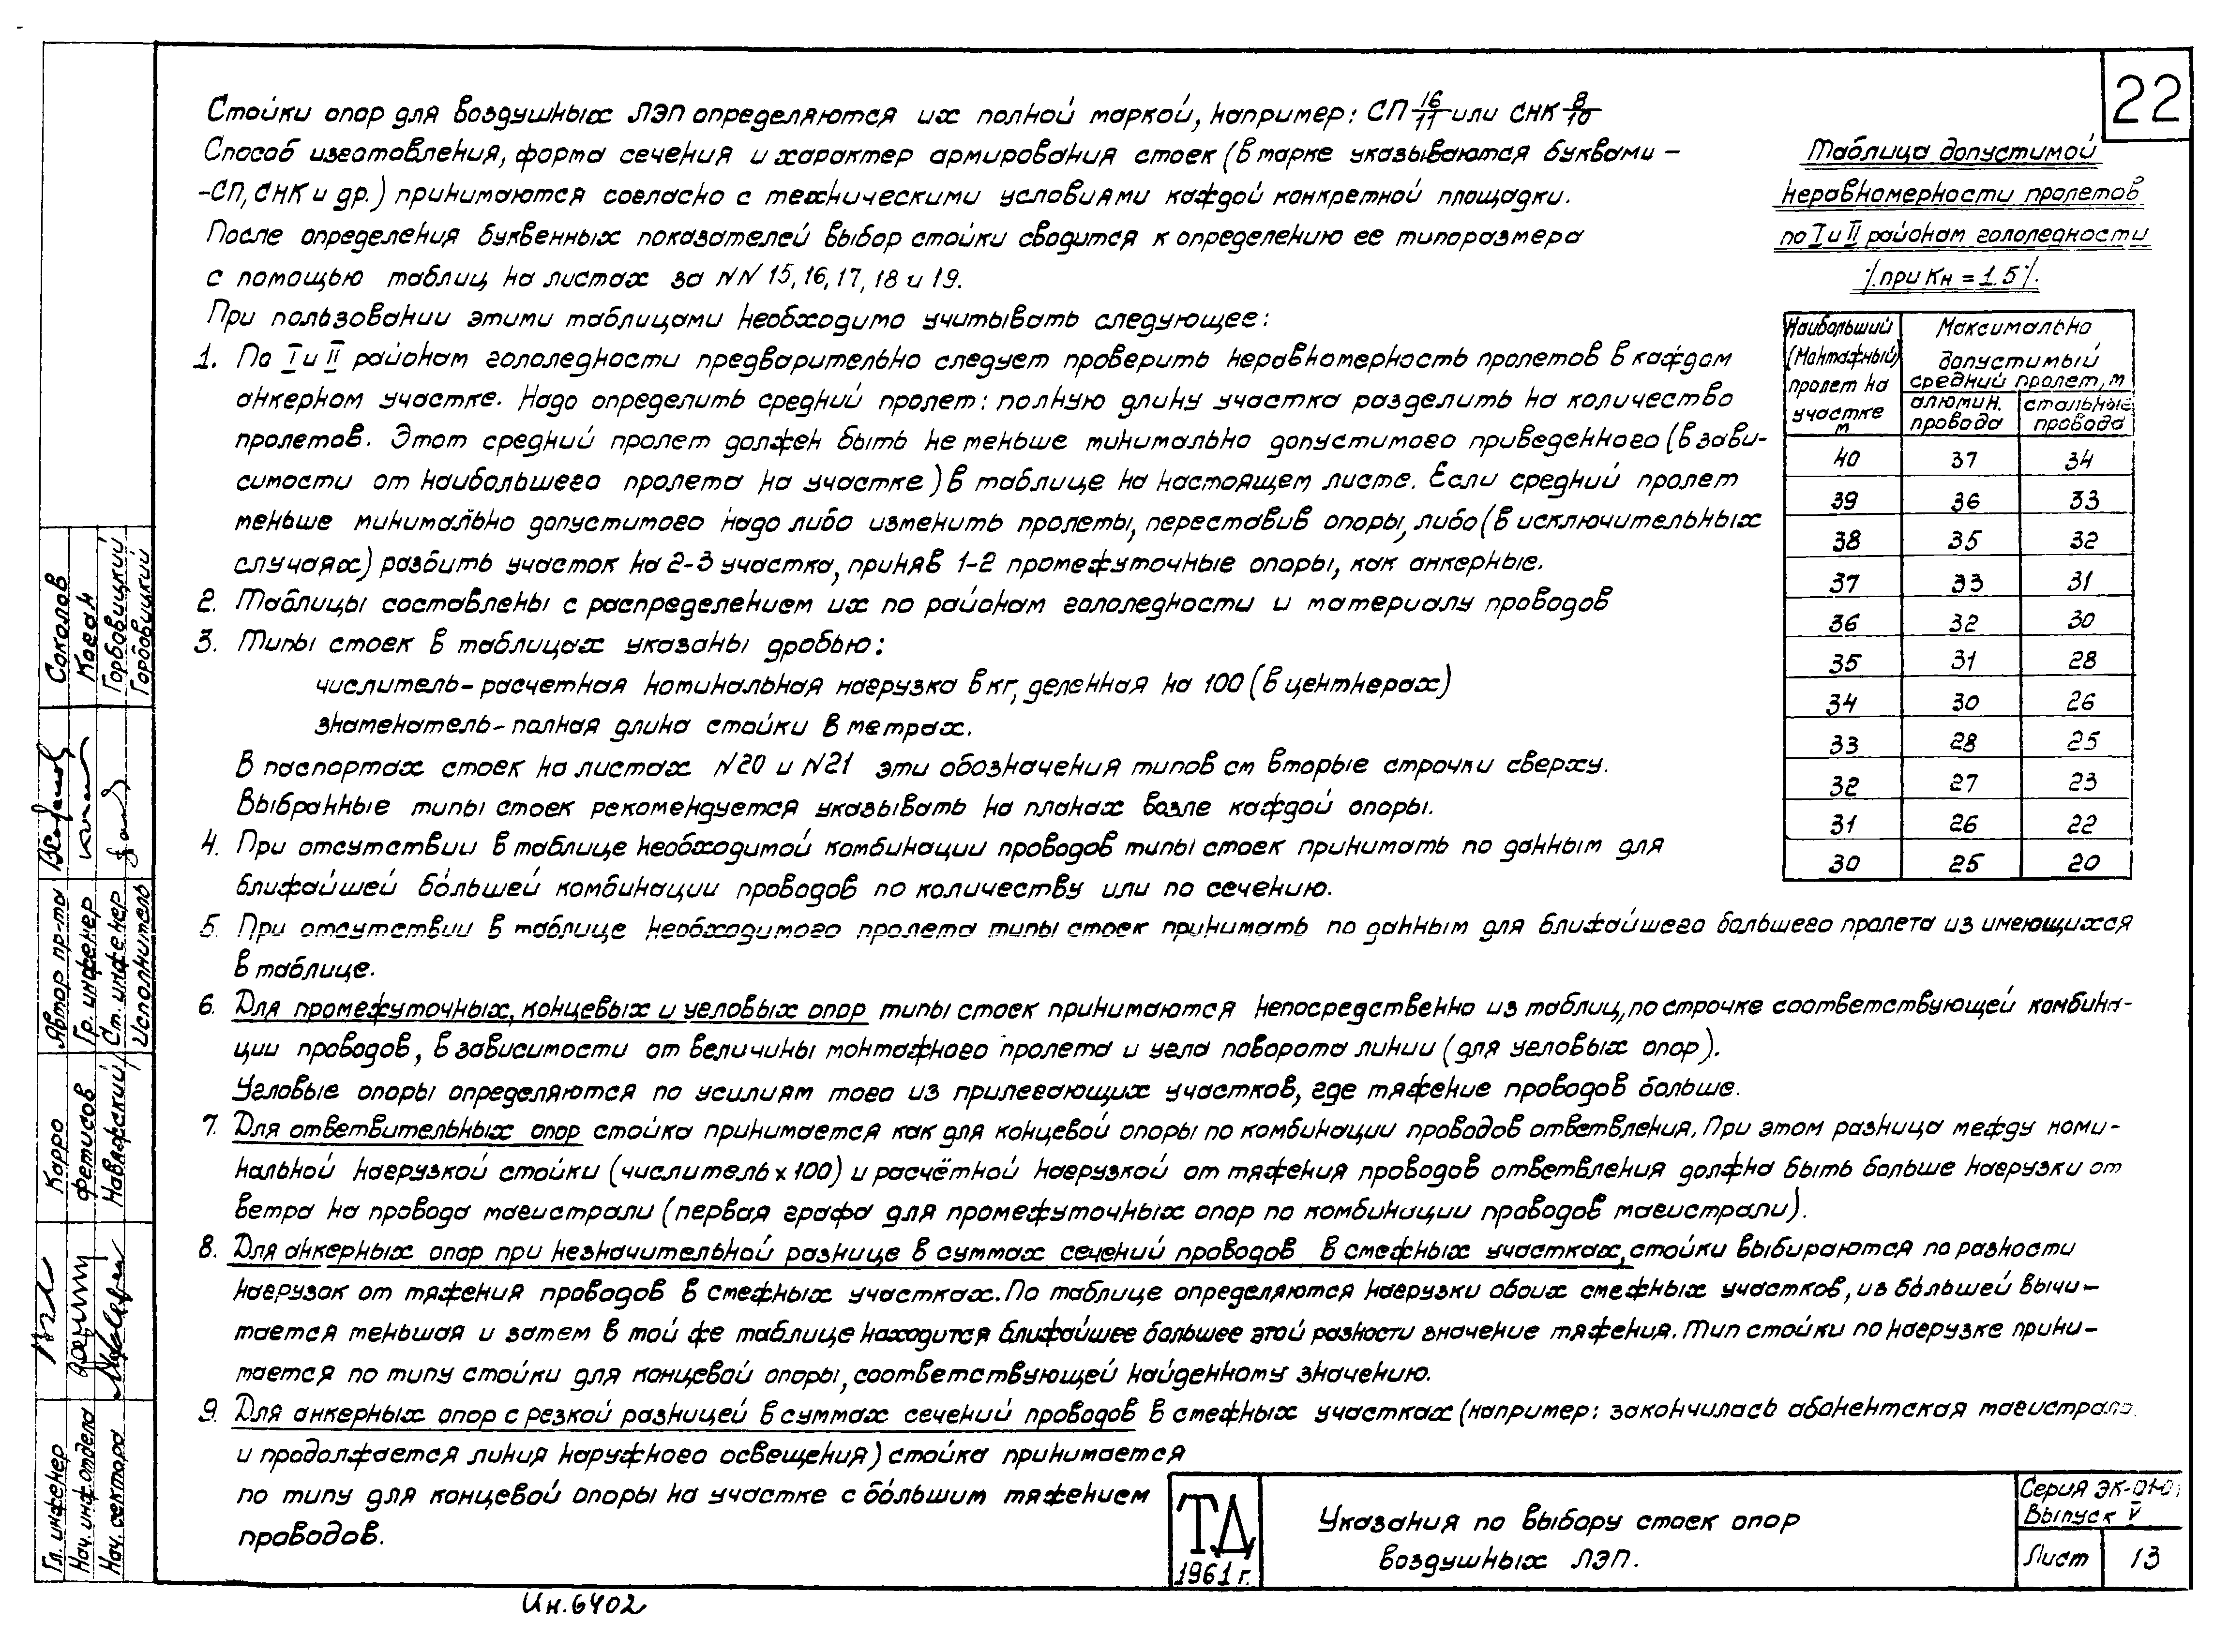 22
Стойки опор для воздушных ЛЭП определяются их полной маркой, например: СП 16/11 или СНК 8/10
Способ изготовления, форма сечения и характер армирования стоек (в марке указываются буквами –
-СП, СНК и др.) принимаются согласно с техническими условиями каждой конкретной площадки.
После определения буквенных показателей выбор стойки сводится к определению ее типоразмера
с помощью таблиц на листах за NN 15, 16, 17, 18 и 19.
При пользовании этими таблицами необходимо учитывать следующее:
1. По I и II районам гололедности предварительно следует проверить неравномерность пролетов в каждом
анкерном участке. Надо определить средний пролет: полную длину участка разделить на количество
пролетов. Этот средний пролет должен быть не меньше минимально допустимого приведенного (в зави-
симости от наибольшего пролета на участке) в таблице на настоящем листе. Если средний пролет
меньше минимально допустимого надо либо изменить пролеты, переставив опоры, либо (в исключительных
случаях) разбить участок на 2-3 участка, приняв 1-2 промежуточные опоры, как анкерные.
2. Таблицы составлены с распределением их по районам гололедности и материалу проводов
3. Типы стоек в таблицах указаны дробью:
числитель – расчетная номинальная нагрузка в кг, деленная на 100 (в центнерах)
знаменатель – полная длина стойки в метрах.
В паспортах стоек на листах N20 и N21 эти обозначения типов см вторые строчки сверху.
Выбранные типы стоек рекомендуется указывать на планах возле каждой опоры.
4. При отсутствии в таблице необходимой комбинации проводов типы стоек принимать по данным для
ближайшей большей комбинации проводов по количеству или по сечению.
5. При отсутствии в таблице необходимого пролета типы стоек принимать по данным для ближайшего большего пролета из имеющихся
в таблице.
6. Для промежуточных, концевых и угловых опор типы стоек принимаются непосредственно из таблиц, по строчке соответствующей комбина-
ции проводов, в зависимости от величины монтажного пролета и угла поворота линии (для угловых опор).
Угловые опоры определяются по усилиям того из прилегающих участков, где тяжение проводов больше.
7. Для ответвительных опор стойка принимается как для концевой опоры по комбинации проводов ответвления. При этом разница между номи-
нальной нагрузкой стойки (числитель х 100) и расчётной нагрузкой от тяжения проводов ответвления должна быть больше нагрузки от
ветра на провода магистрали (первая графа для промежуточных опор по комбинации проводов магистрали).
8. Для анкерных опор при незначительной разнице в суммах сечений проводов в смежных участках, стойки выбираются по разности
нагрузок от тяжения проводов в смежных участках. По таблице определяются нагрузки обоих смежных участков, из большей вычи-
тается меньшая и затем в той же таблице находится ближайшее большее этой разности значение тяжения. Тип стойки по нагрузке прини-
мается по типу стойки для концевой опоры, соответствующей найденному значению.
9. Для анкерных опор с резкой разницей в суммах сечений проводов в смежных участках (например: закончилась абонентская магистраль
и продолжается линия наружного освещения) стойка принимается
по типу для концевой опоры на участке с бо́льшим тяжением
проводов.
Таблица допустимой
неравномерности пролетов
по I и II районам гололедности
/при Кн = 1.5/.
Наибольший (Монтажный) пролет на участке м | Максимально допустимый средний пролет, м
алюмин. провода | стальные провода
40 37 34
39 36 33
38 35 32
37 33 31
36 32 30
35 31 28
34 30 26
33 28 25
32 27 23
31 26 22
30 25 20
ТД
1961 г.
Указания по выбору стоек опор
воздушных ЛЭП.
Серия ЭК-01-0
Выпуск V
Лист 13
Ин. 6402
Гл. инженер Карро
Нач. инж. отдела Фетисов
Нач. сектора Навяжский
Автор пр-та Соколов
Гр. инженер Коган
Ст. инженер Горбовицкий
Исполнитель Горбовицкий